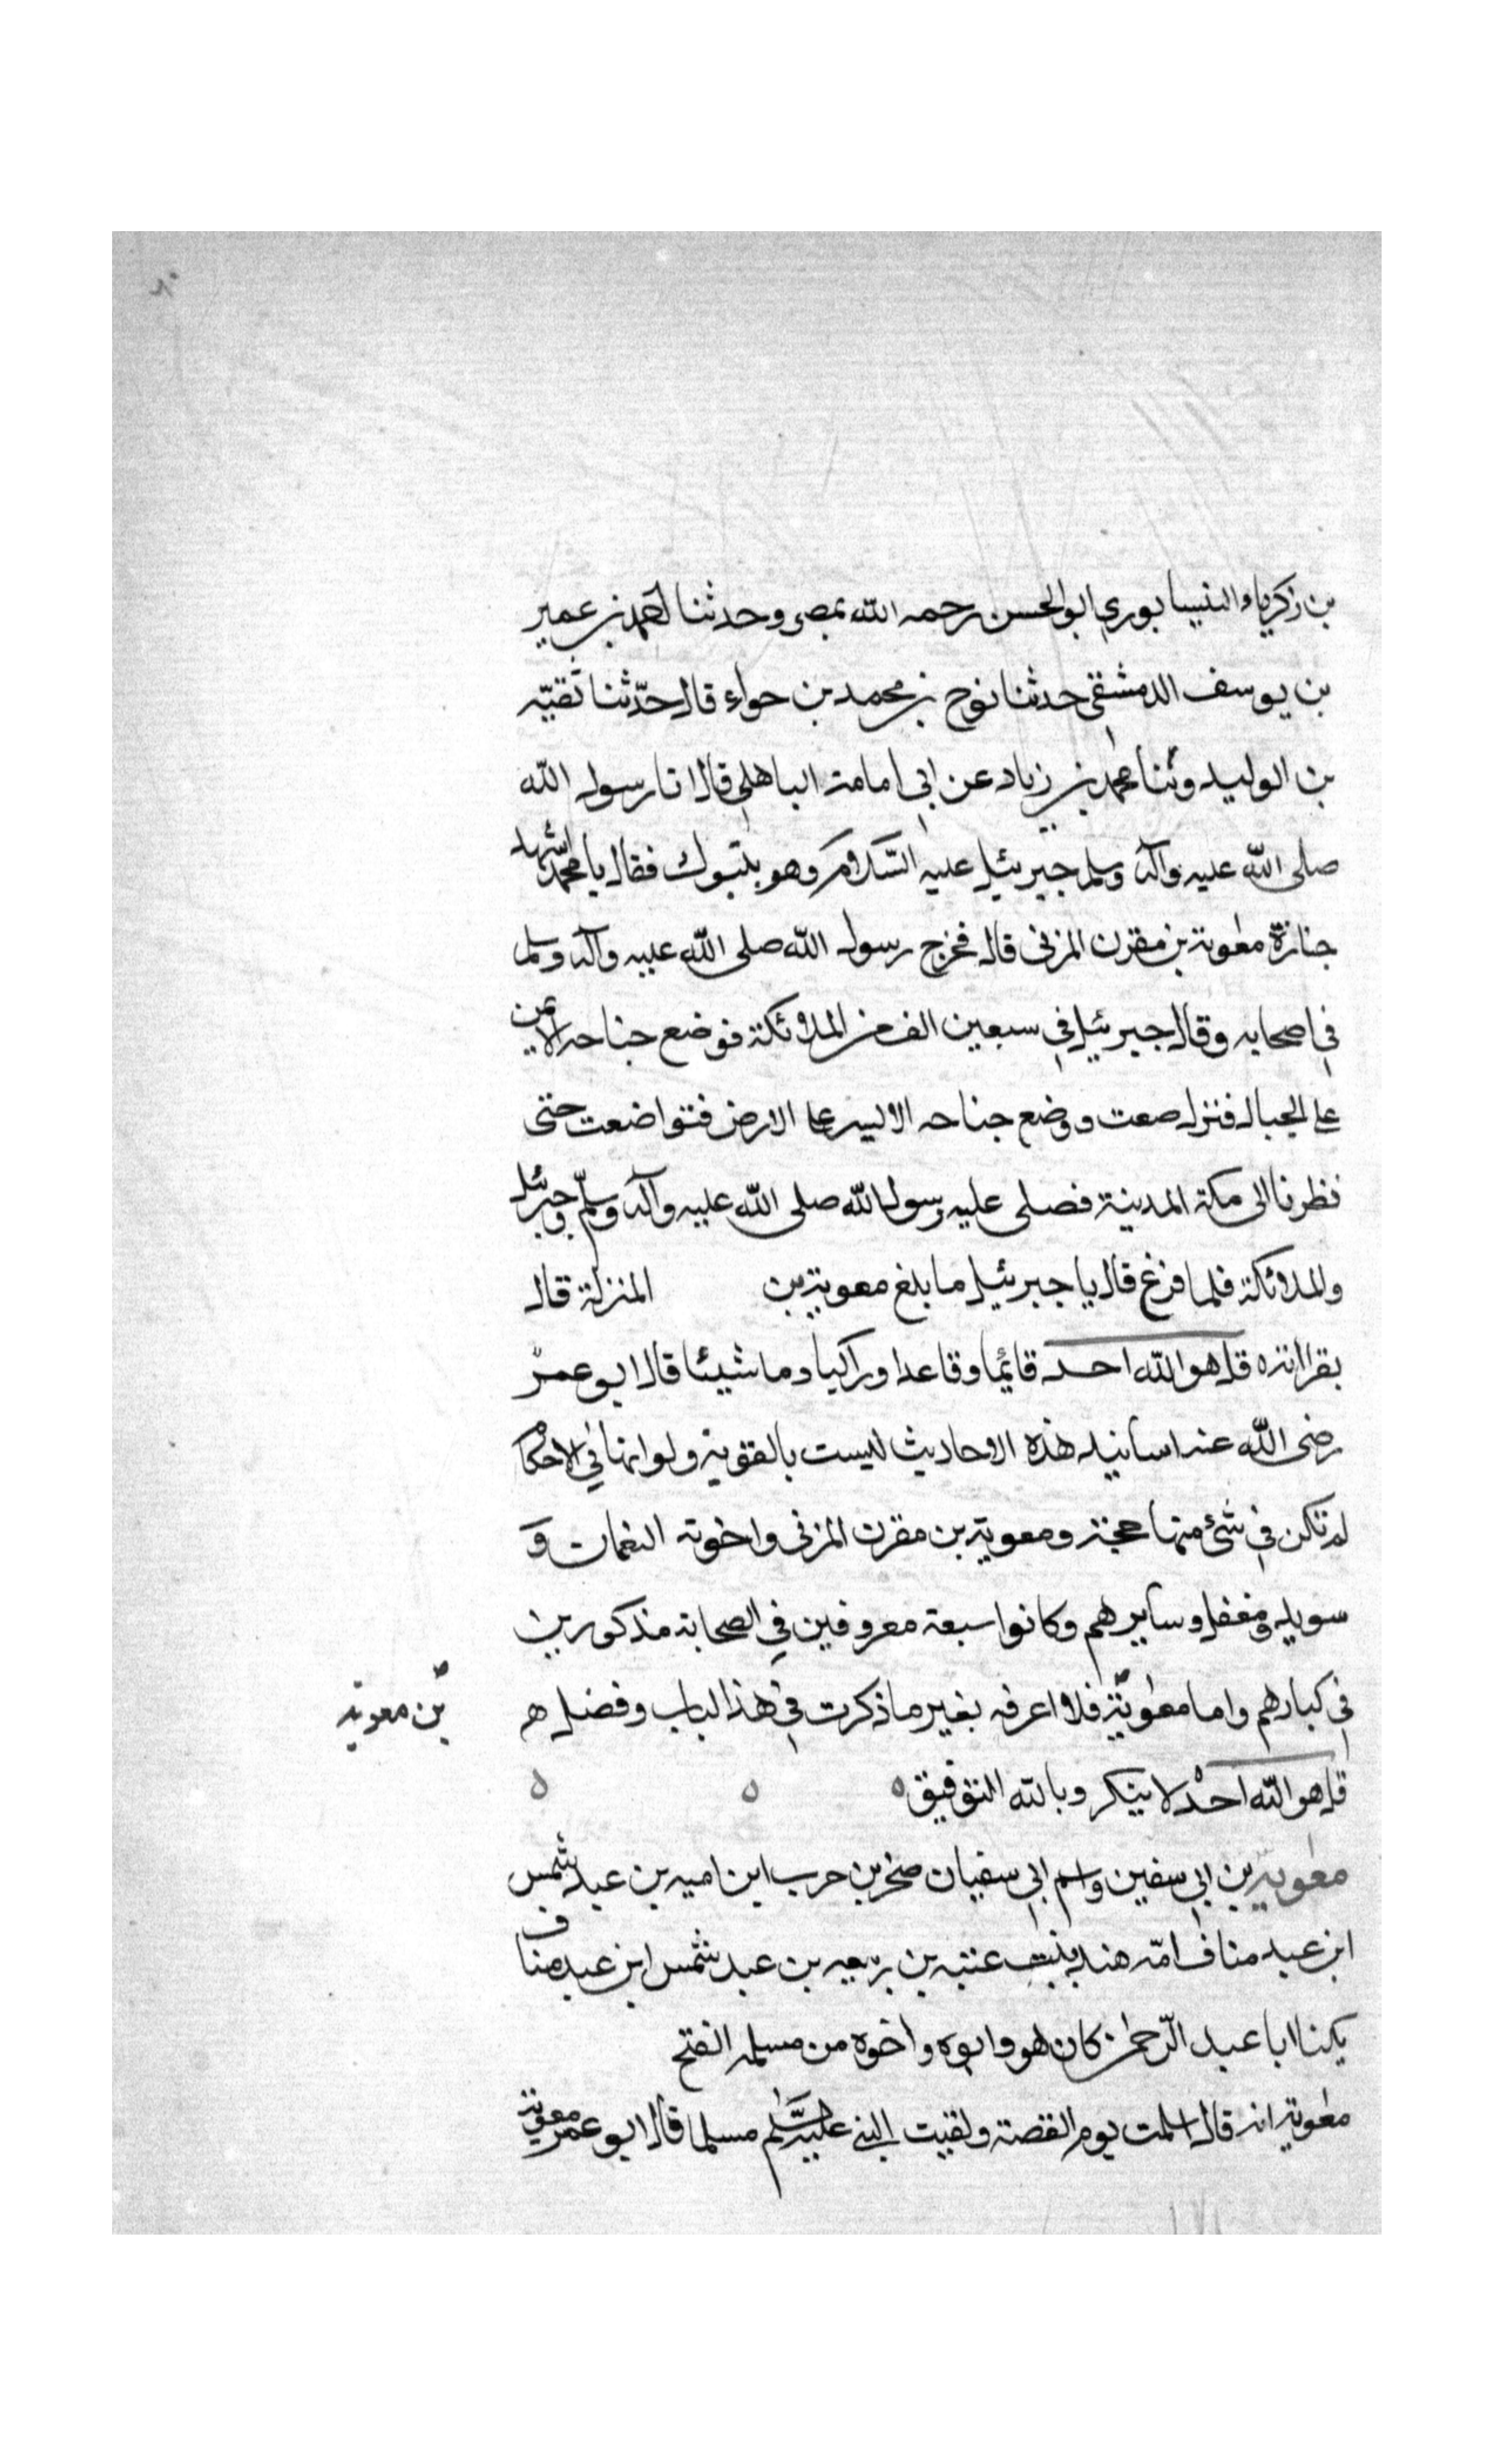 بن زكرياء النيسابوري ابو الحسن رحمه الله بمصر وحدثنا احمد بن عمير
بن يوسف الدمشقي حدثنا نوح بن محمد بن حواء قال حدّثنا تقيّه
بن الوليد وثنا محمد بن زياد عن ابي امامة الباهلي قال اتا رسول الله
صلى الله عليه وآله وسلم جبرئيل عليه السّلام وهو بتبوك فقال يا محمد اشهد
جنازة معوية بن مقرن المزنى قال فخرج رسول الله صلى الله عليه وآله وسلم
في اصحابه وقال جبرئيل في سبعين الف من الملائكة فوضع جناحه الايمن
على الجبال فنزلـ ـصعت ووضع جناحه الايسر على الارض فتواضعت حتى
نظرنا الى مكة المدينة فصلى عليه رسول الله صلى الله عليه وآله وسلّم وجبرئيل
والملائكة فلما فرغ قال يا جبرئيل ما بلغ معوية بن المنزلة قال
بقرااته قل هو الله احد قايمًا وقاعدا وراكبا وماشيئا قال ابو عمر
رضى الله عنه اسانيد هذه الاحاديث لليست بالقوية ولو انها في الاحكام
لم تكن في شئ منها حجة ومعوية بن مقرن المزنى واخوته النعمان و
سويد ومغفل وسايرهم وكانوا سبعة معروفين في الصحابة مذكورين
في كبارهم واما معوية فلا اعرفه بغير ما ذكرت في هذا الباب وفضل هم
بن معوية
قل هو الله احد لا ينكر وبالله التوفيق ه ه ه
معوية بن ابي سفين واسم ابي سفيان صخر بن حرب ابن اميه بن عبد شمس
ابن عبد مناف امّه هند بنت عتبه بن ربيعه بن عبد شمس ابن عبد مناف
يكنا ابا عبد الرّحمن كان هو وابوه واخوه من مسلمه الفتح
معوية انه قال اسلمت يوم القصة ولقيت النبي عليه السّلم مسلما قال ابو عمر معوية